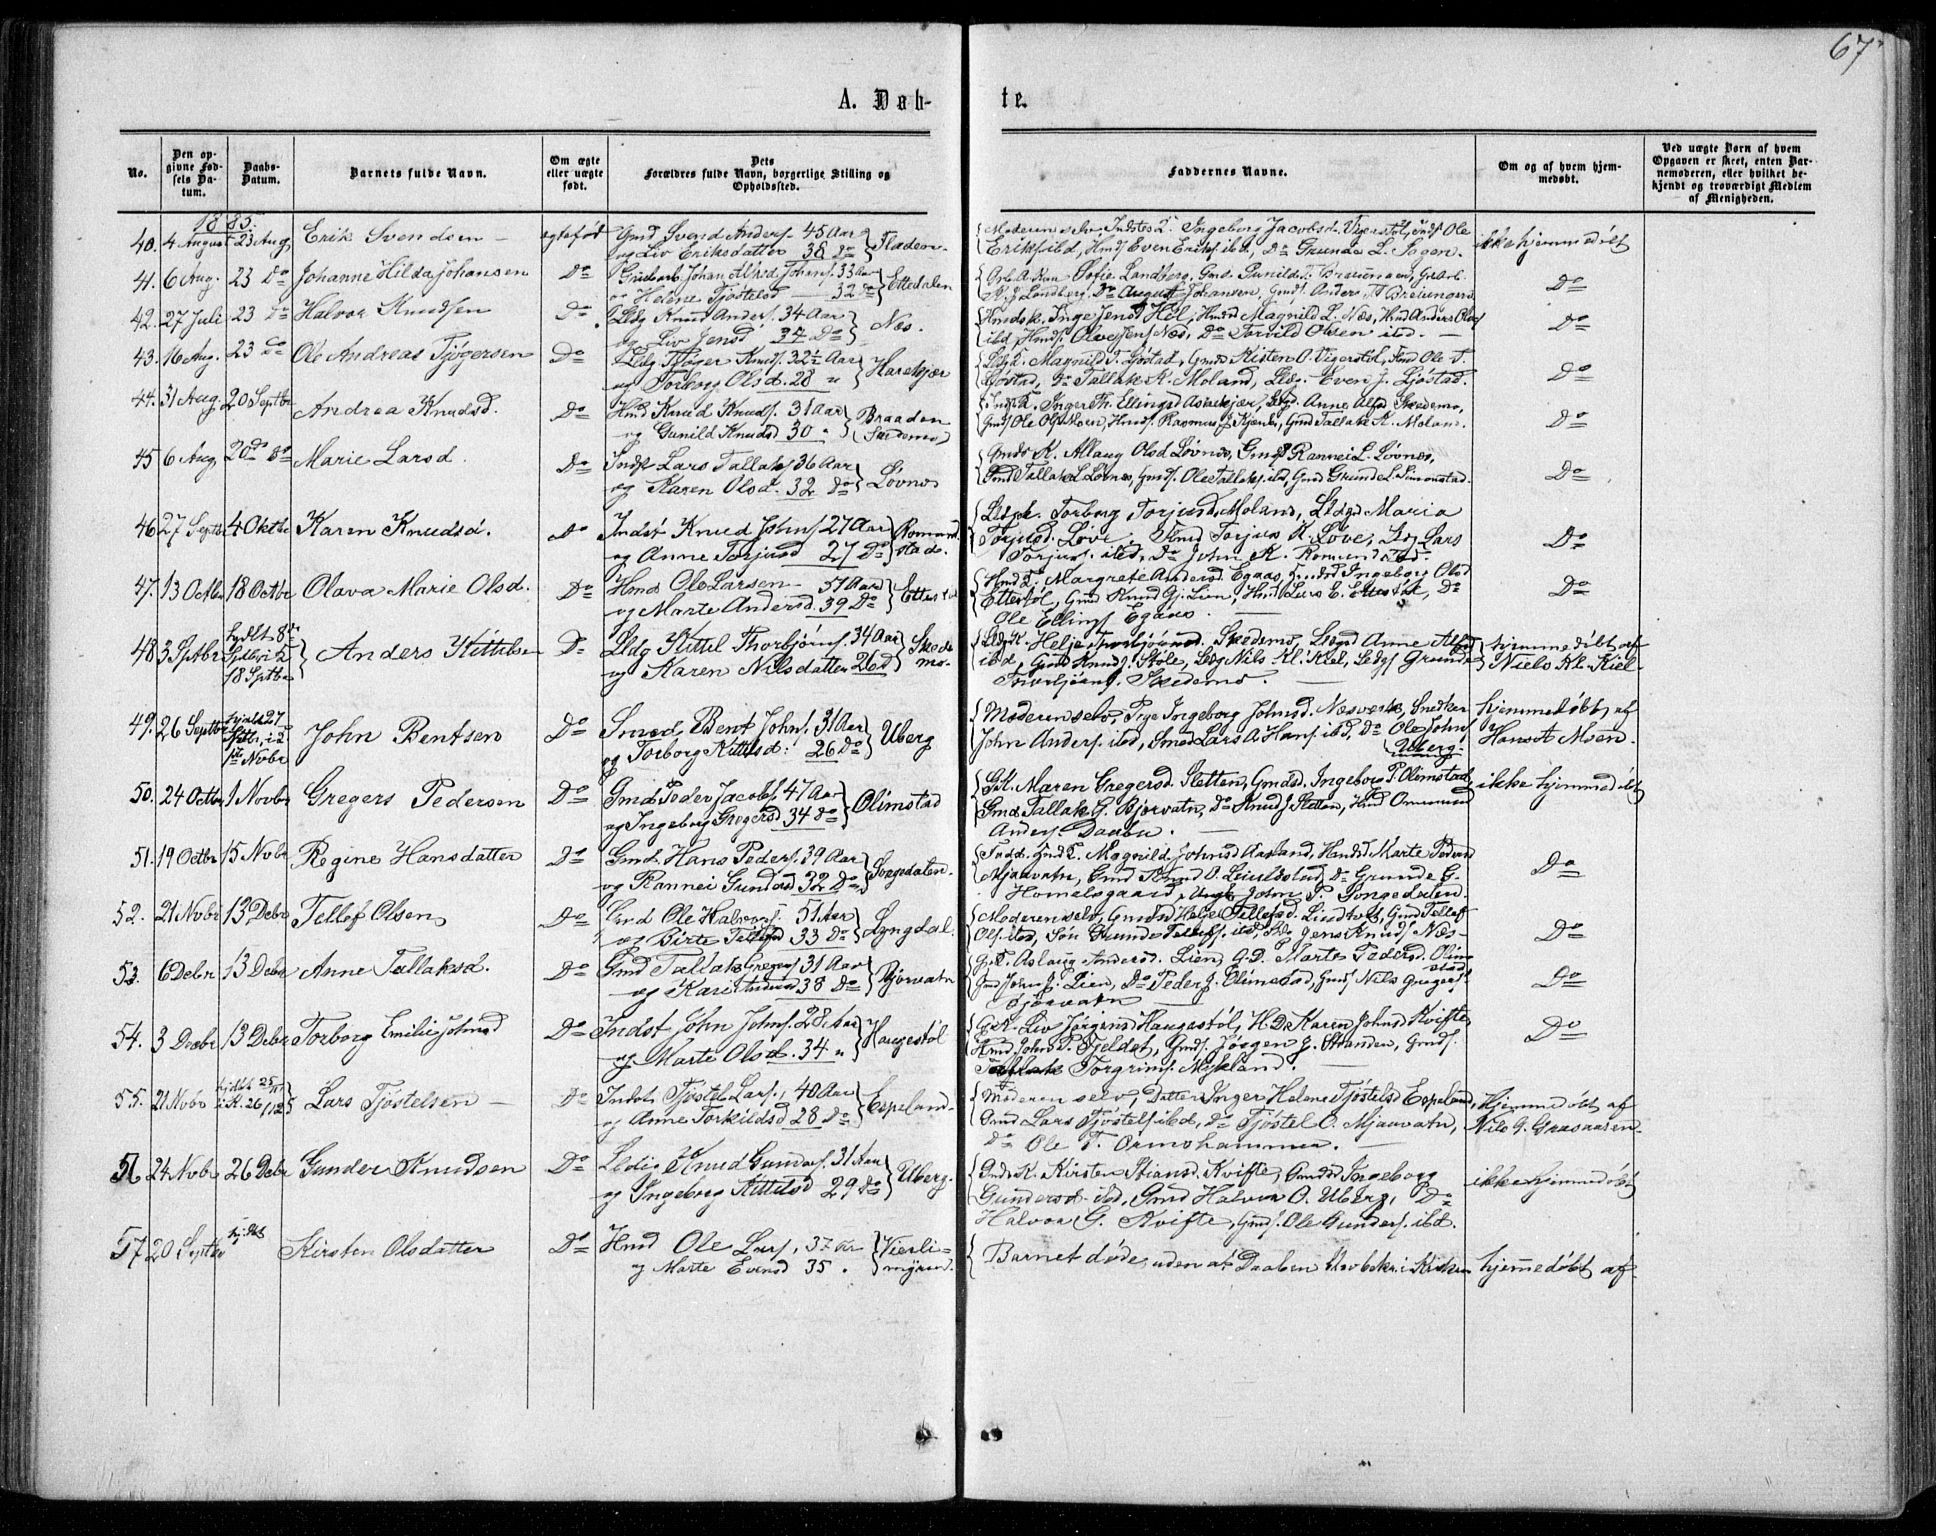 67
A. Døb-
te.
No.
Den opgivne Fødsels Datum.
Daabs-Datum.
Barnets fulde Navn.
Om ægte eller uægte født.
Dets Forældres fulde Navn, borgerlige Stilling og Opholdssted.
Faddernes Navne.
Om og af hvem hjemmedøbt.
Ved uægte Børn af hvem Opgaven er skeet, enten Barnemoderen, eller hvilket bekjendt og troværdigt Medlem af Menigheden.
1885.
40. 4 August 23 Aug. Erik Svendsen ægtefød Gmd Svend Anders. 45 Aar
og Liv Eriksdatter 38 Do Floden
Moderen selv, Ingeborg Jacobsd. Vigerstøl, Ole
Eriks. ibd, Hmd. Even Eriks. ibd, Do Grunde L. Fogen. ikke hjemmedøbt
41. 6 Aug. 23 Do Johanne Hilda Johansen Do Johan Alfred Johns. 33 Aar
og Helene Tjøstelsd 32 Do Ettedalen
Sofie Landberg, Gunild
J. Landberg, Do August Johansen, Gmds. Anders Do
42. 27 Juli 23 Do Halvor Knudsen Do Ldg Knud Anders. 34 Aar
og Liv Jensd 34 Do Næs.
Inge Jensd Hol, Hmd Magnild L. Næs, Hmd Anders Olss
ibd, Hmds. Olav Jens. Næs, Do Torvild Olsen ibd. Do
43. 16 Aug. 23 Do Ole Andreas Tjøgersen Do Ldg Tjøger Knuds. 32½ Aar
og Torborg Olsd. 28 " Harekjær
Magnild J. Ljøstad, Gmds Kisten O. Vigerstøl, Ole T.
Ljøstad, Do Tallak K. Moland, Ldg. Even J. Ljøstad. Do
44. 31 Aug. 20 Septbr Andrea Knudsd. Do Hmd Knud Knuds. 31 Aar
og Gunild Knudsd 30 " Braaden Skedemo
Inger Th. Ellingsd Askekjær, Ldgd. Anne Alfsd Skedemo,
Gmds Ole Ols. Moen, Hmds. Rasmus J. Kjenli, Gmd Tallak K. Moland. Do
45 6 Aug. 20de Do Marie Larsd. Do Indst Lars Tallaks. 36 Aar
og Karen Olsd. 32 Do Løvnes
Gmds K. Allaug Olsd Løvnes, Gmdsd Rannei L. Løvnes,
Gmd Tallak L. Løvnes, Gmds. Ole Tallaks. ibd, Gmd Grunde L. Simonstad. Do
46 27 Septbr 4 Oktbr Karen Knudsd. Do Indst Knud Johns. 27 Aar
og Anne Torjusd 27 Do Romundstad.
Torborg Torjusd. Moland, Ldgd Maria
Torjusd. Løve, Gmd Torjus K. Løve, Ldg Lars
Torjus. ibd, Do John K. Romundstad. Do
47. 13 Octbr 18 Octbr Olava Marie Olsd. Do Hmd Ole Larsen 51 Aar
og Marte Andersd. 39 Do Etterstøl
Hmd K. Margrete Andersd Egaas, Ingeborg Olsd
Etterstøl, Gmd Knud Gj. Lien, Hmd Lars E. Etterstøl, Do
Ole Ellings. Egaas. Do
48 3 Sptbr hjdbt 8de Sptbr i K 18 Septbr Anders Kittilsen Do Ldg Kittil Thorbjørns. 34 Aar
og Karen Nilsdatter 26 Do Skedemo.
Helje Thorbjørnsd. Skedemo, Ldgd Anne Alfsd
ibd, Gmd Knud J. Støle, Ldg Nils Kl. Kiel, Ldgs Grunde
Thorbjørns. Skedemo. hjemmedøbt af
Niels Kl. Kiel
49. 26 Septbr hjdbt 27 Sptbr, i K 1ste Novbr John Bentsen Do Smed Bent Johns. 31 Aar
og Torborg Kittilsd: 26 Do Uberg
Moderen selv, Pige Ingeborg Johnsd. Næsverk, Snedker
John Anders. ibd, Smed Lars A. Hans. ibd, Do Ole Johns.
Uberg. hjemmedøbt af
Hans A. Moen.
50. 24 Octbr 1 Novbr Gregers Pedersen Do Gmd Peder Jacobs. 47 Aar
og Ingeborg Gregersd 34 Do Olimstad
Gk. Maren Gregersd Sletten, Gmdsd. Ingeborg P. Olimstad
Gmd Tallak G. Bjorvatn, Do Knud J. Sletten, Hmd Ommund
Anders. Daabu. ikke hjemmedøbt
51. 19 Octbr 15 Novbr Regine Hansdatter Do Gmd. Hans Peders. 39 Aar
og Rannei Gundersd 32 Do Songedalen.
Fadd. Gmd K. Magnild Johnsd Aasland, Hmdsd Marte Pedersd
Mjaavatn, Gmd Knud O. Do Grunde G.
Homelsgaard, Ungk John P. Songedalen. Do
52. 21 Novbr 13 Debr Tellef Olsen Do Gmd Ole Halvors. 51 Aar
og Birte Tellefsd 33 Do Lyngdal.
Moderen selv, Gmdsd Helje Tellefsd. Lindtvedt, Gmd Tellef
Ols. ibd, Søn Grunde Tellefs. ibd, Jens Knuds. Næs Do
53. 6 Debr 13 Debr Anne Tallaksd. Do Gmd Tallak Gregers. 31 Aar
og Kari Andersd 38 Do Bjorvatn
G.K. Aslaug Andersd. Lien, G.D. Marte Pedersd. Olimstad
Gmd John J. Lien, Do Peder J. Olimstad, Gmds Nils Gregers.
Bjorvatn Do
54. 3 Decbr 13 Debr Torborg Emilie Johnsd Do Indst John Johns. 28 Aar
og Marte Olsd. 34 " Haugestøl
G.K. Liv Jørgensd Haugestøl, H.D. Karen Johnsd Kvifte
Hmd John P. Fjeldet, Gmds. Jørgen J. Stranden, Gmds.
Torgrims. Mykland. Do
55. 21 Novbr hjdbt 25/11 i K. 26/12 85 Lars Tjøstelsen Do Indst Tjøstel Lars. 40 Aar
og Anne Torkildsd 28 Do Espeland
Moderen selv, Datter Inger Helene Tjøstelsd Espeland,
Gmd Lars Tjøstels. ibd, Do Tjøstel O. Mjaavatn,
Do Ole T. Ormshammen. Hjemmedøbt af
Nils G. Grasaasen
56 24 Novbr 26 Debr Gunder Knudsen Do Ledig Knud Gunders. 31 Aar
og Ingeborg Kittilsd 29 Do Uberg.
Gmds K. Kirsten Stiansd. Kvifte, Gmdsd Ingeborg
Gundersd. ibd, Gmd Halvor O. Uberg, Do
Halvor G. Kvifte, Gmds. Ole Gunders. ibd. ikke hjemmedøbt
57 20 Septbr hjdbt Kirsten Olsdatter Do Hmd Ole Lars. 37 Aar
og Marte Evensd 35 " Vierli-
myren.
Barnet døde, uden at Daaben blev bekr. i Kirken hjemmedøbt af